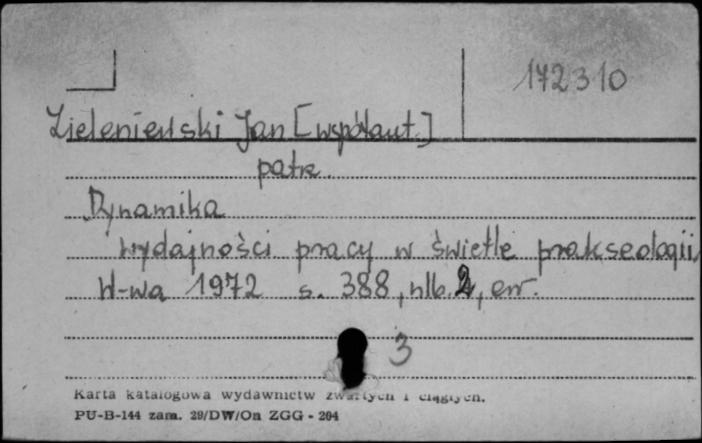 172310
Zieleniewski Jan [współaut.]
patrz
Dynamika
wydajności pracy w świetle prakseologii
W-wa 1972 s. 388, nlb. 2, err.
3
Karta katalogowa wydawnictw zwartych i ciągłych.
PU-B-144 zam. 29/DW/On ZGG - 204